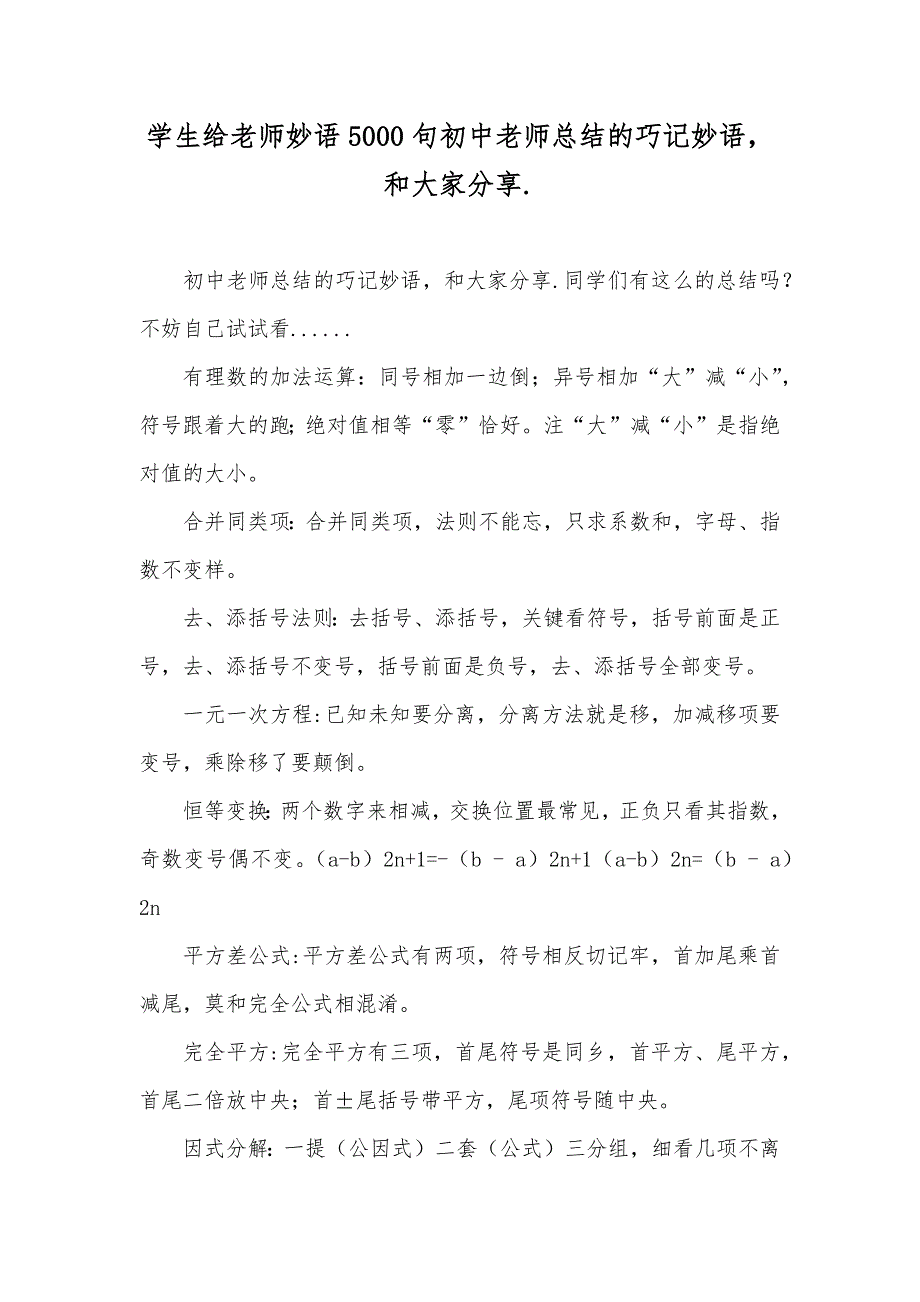 学生给老师妙语 5000 句初中老师总结的巧记妙语，
和大家分享.
初中老师总结的巧记妙语，和大家分享.同学们有这么的总结吗？
不妨自己试试看......
有理数的加法运算：同号相加一边倒；异号相加“大”减“小”，
符号跟着大的跑；绝对值相等“零”恰好。注“大”减“小”是指绝
对值的大小。
合并同类项：合并同类项，法则不能忘，只求系数和，字母、指
数不变样。
去、添括号法则：去括号、添括号，关键看符号，括号前面是正
号，去、添括号不变号，括号前面是负号，去、添括号全部变号。
一元一次方程:已知未知要分离，分离方法就是移，加减移项要
变号，乘除移了要颠倒。
恒等变换：两个数字来相减，交换位置最常见，正负只看其指数，
奇数变号偶不变。（a-b）2n+1=-（b - a）2n+1（a-b）2n=（b - a）
2n
平方差公式:平方差公式有两项，符号相反切记牢，首加尾乘首
减尾，莫和完全公式相混淆。
完全平方:完全平方有三项，首尾符号是同乡，首平方、尾平方，
首尾二倍放中央；首±尾括号带平方，尾项符号随中央。
因式分解：一提（公因式）二套（公式）三分组，细看几项不离